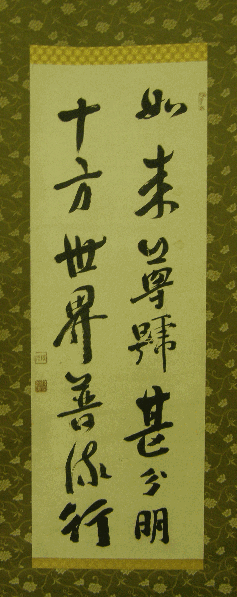 如来尊號甚分明
十方世界普流行